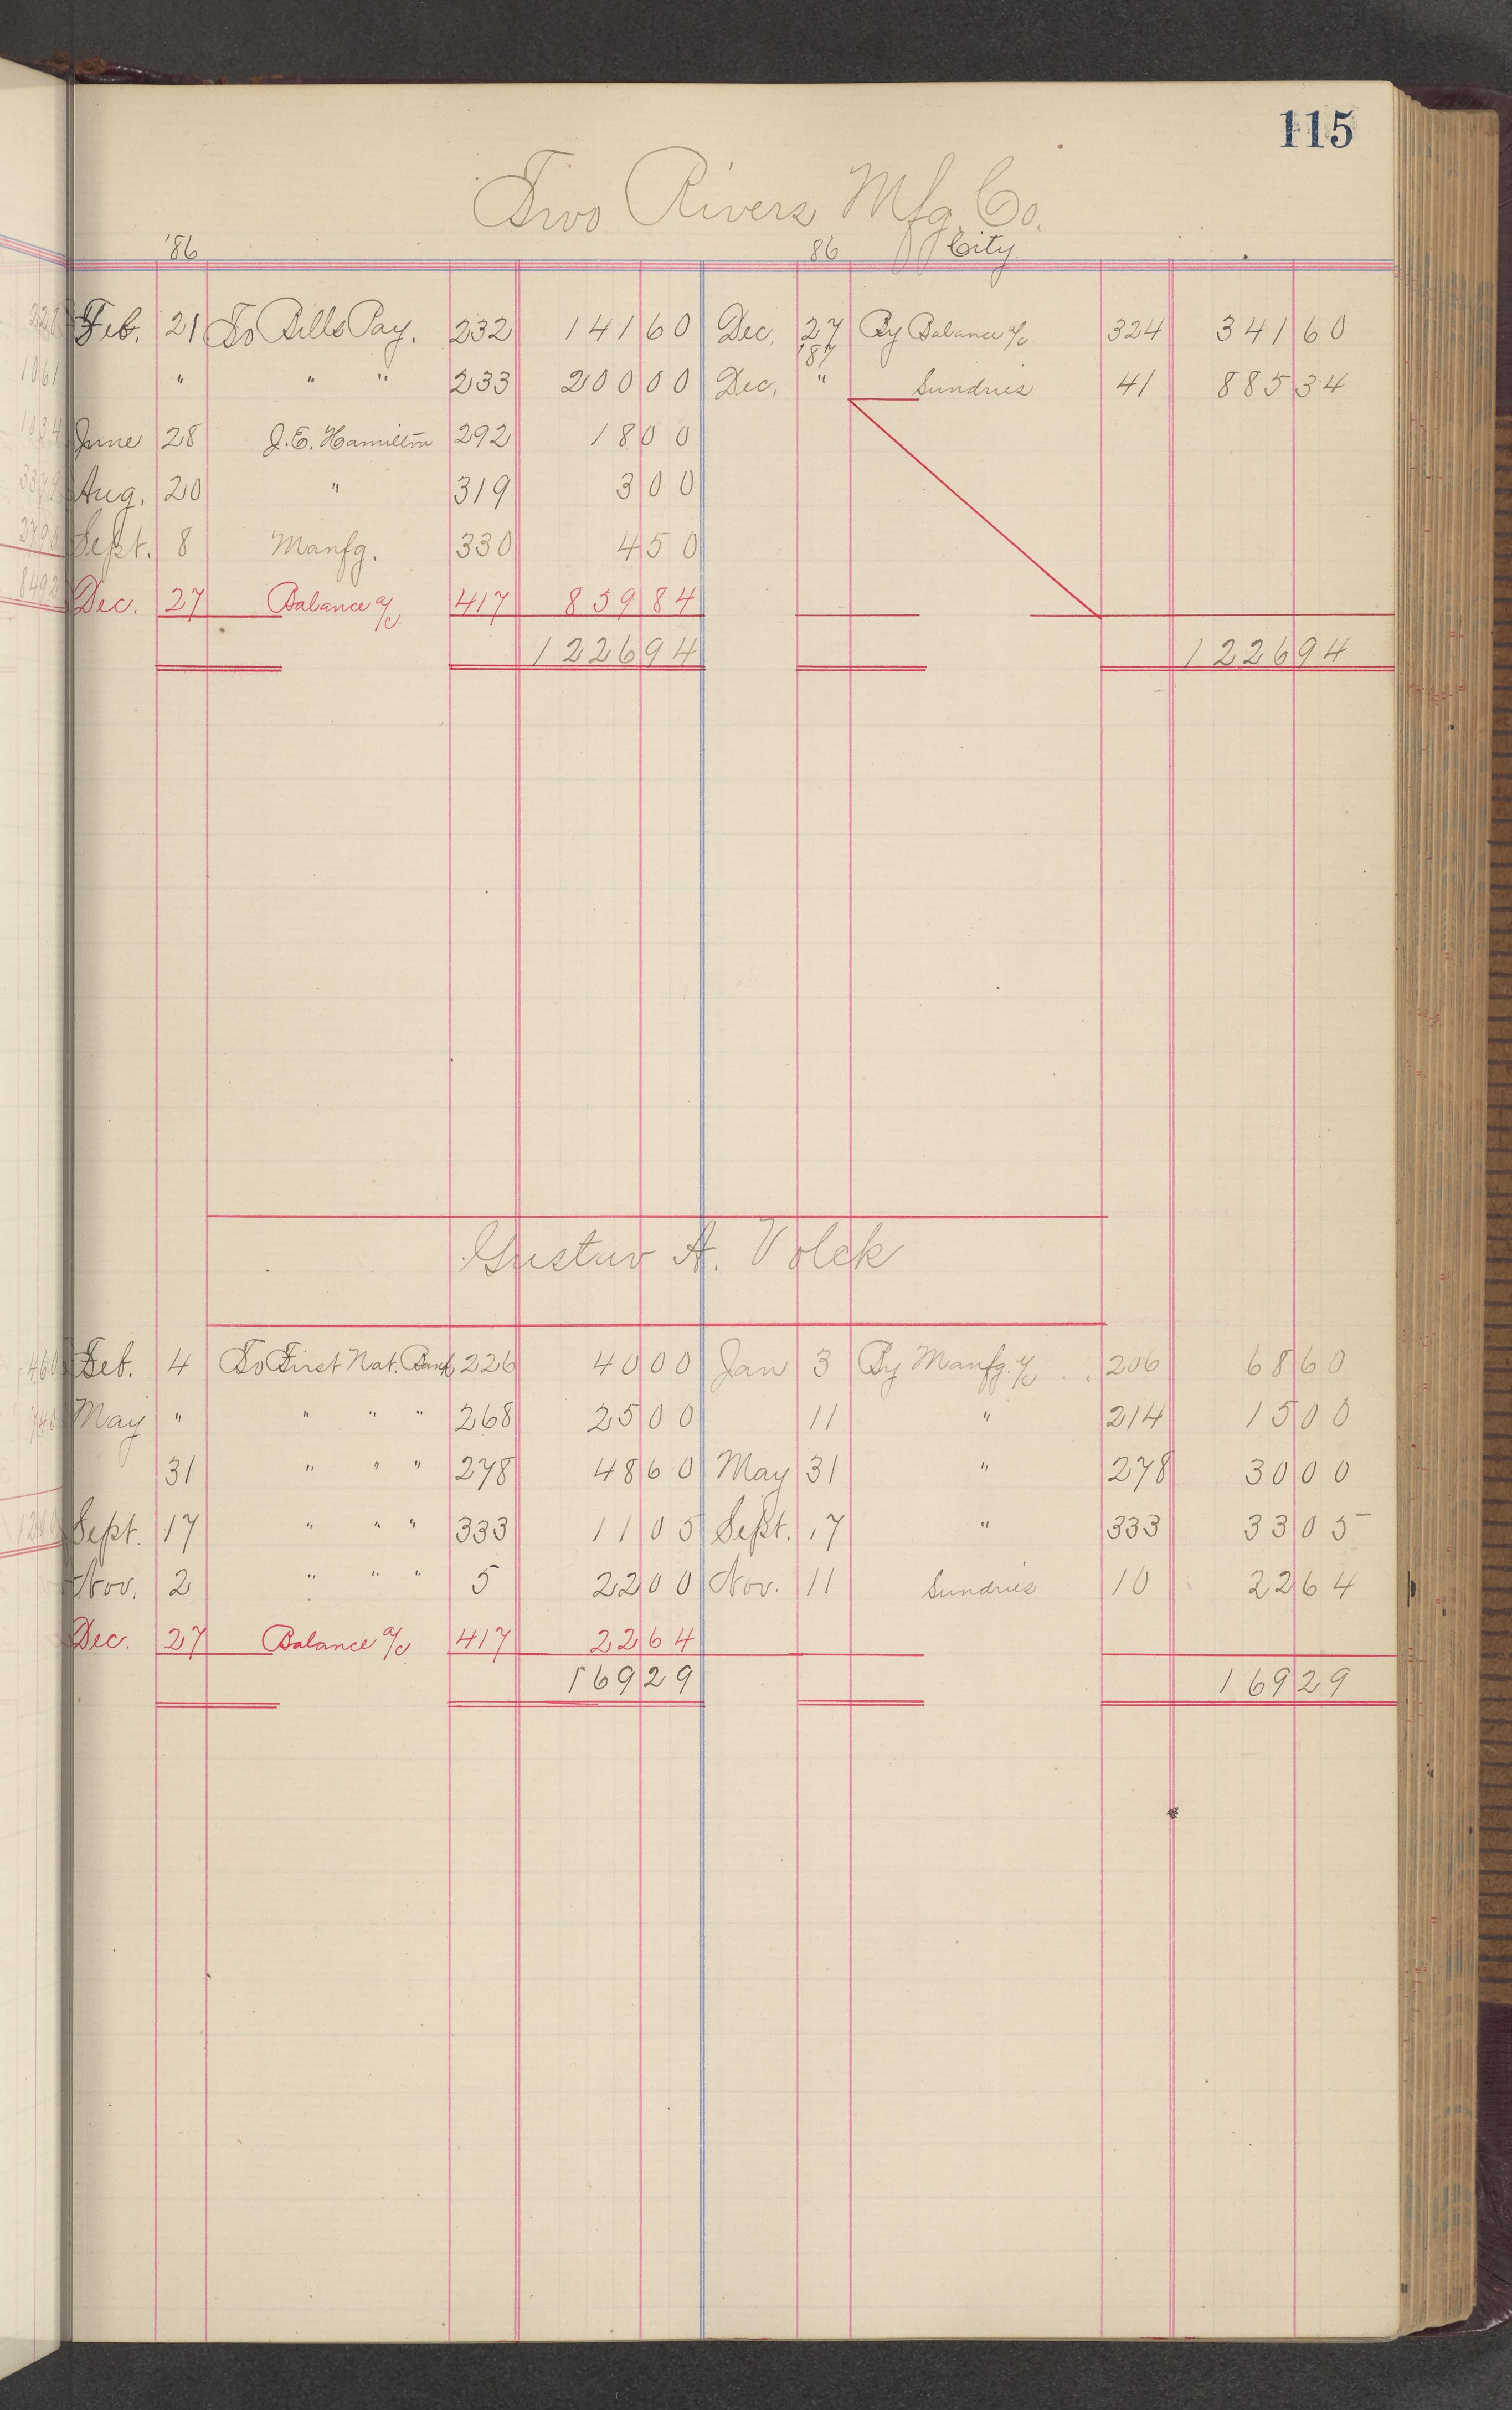 115
Two Rivers Mfg. Co.
'86 86 City.
Feb. 21 To Bills Pay. 232 141 60 Dec. 27 By Balance a/c 324 341 60
'87
" " " 233 200 00 Dec. " Sundries 41 885 34
June 28 J. E. Hamilton 292 18 00
Aug. 20 " 319 3 00
Sept. 8 Manfg. 330 4 50
Dec. 27 Balance a/c 417 859 84
1226 94 1226 94
Gustav A. Volck
Feb. 4 To First Nat. Bank 226 40 00 Jan 3 By Manfg. a/c 206 68 60
May " " " " 268 25 00 11 " 214 15 00
31 " " " 278 48 60 May 31 " 278 30 00
Sept. 17 " " " 333 11 05 Sept. 17 " 333 33 05
Nov. 2 " " " 5 22 00 Nov. 11 Sundries 10 22 64
Dec. 27 Balance a/c 417 22 64
169 29 169 29